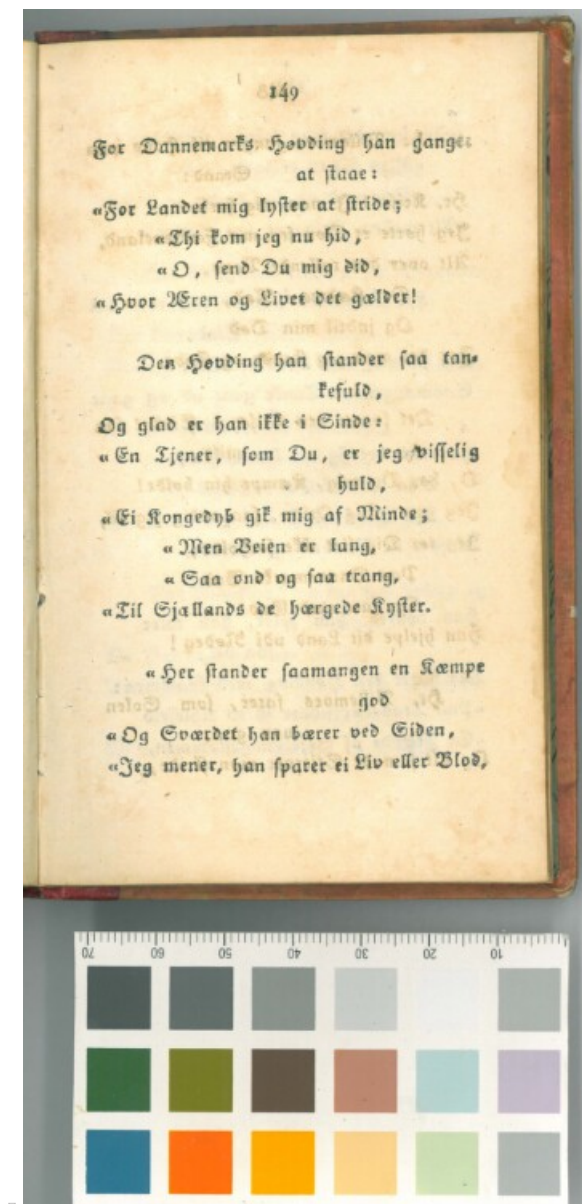 149
For Dannemarks Høvding han ganger
at staae:
«For Landet mig lyster at stride;
«Thi kom jeg nu hid,
«O, send Du mig did,
«Hvor Æren og Livet det gælder!
Den Høvding han stander saa tan-
kefuld,
Og glad er han ikke i Sinde:
«En Tjener, som Du, er jeg visselig
huld,
«Ei Kongedyb gik mig af Minde;
«Men Veien er lang,
«Saa ond og saa trang,
«Til Sjællands de hærgede Kyster.
«Her stander saamangen en Kæmpe
god
«Og Sværdet han bærer ved Siden,
«Jeg mener, han sparer ei Liv eller Blod,
70 60 50 40 30 20 10